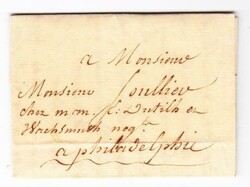 a Monsieur
Monsieur Soullier
chez mm. Dutilh &
Wachsmuth negts
a philadelphie